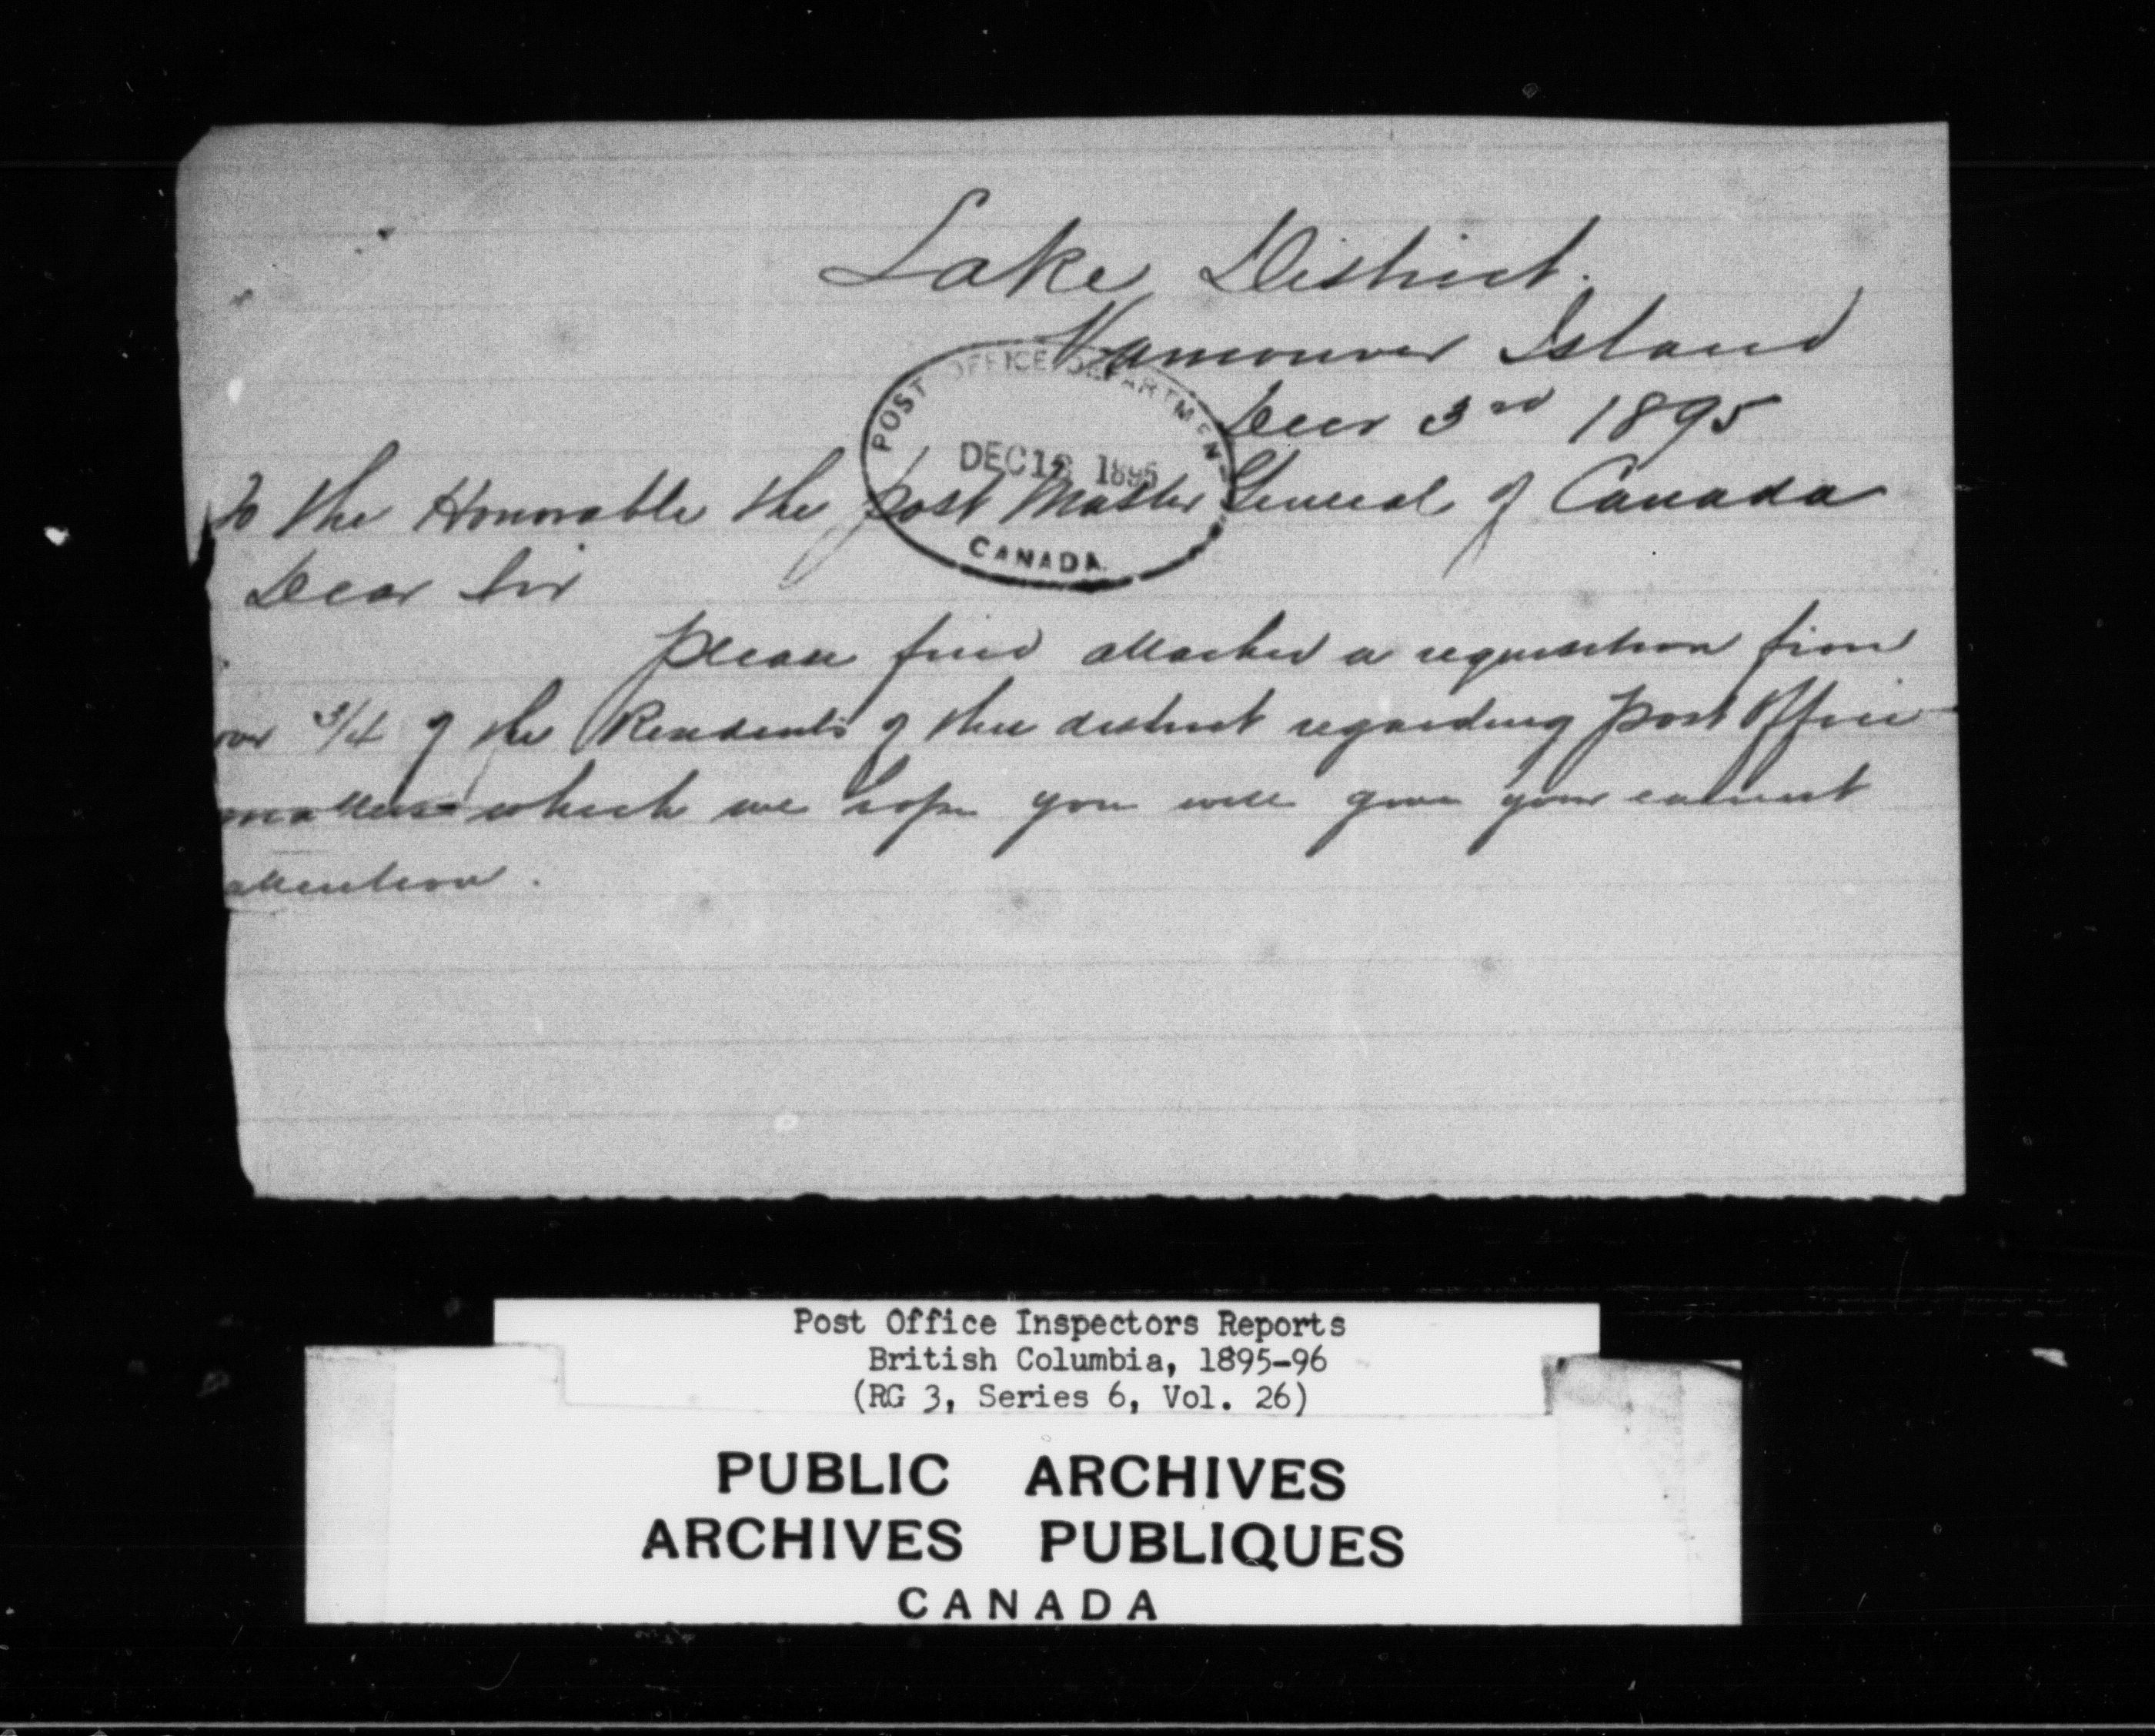 Lake District.
Vancouver Island
Decr 3rd 1895
POST OFFICE DEPARTMENT
DEC 12 1895
CANADA
To the Honorable the Post Master General of Canada
Dear Sir
Please find attached a requisition from
over 3/4 of the Residents of this district regarding Post Office
matters which we hope you will give your earnest
attention.
Post Office Inspectors Reports
British Columbia, 1895-96
(RG 3, Series 6, Vol. 26)
PUBLIC ARCHIVES
ARCHIVES PUBLIQUES
CANADA